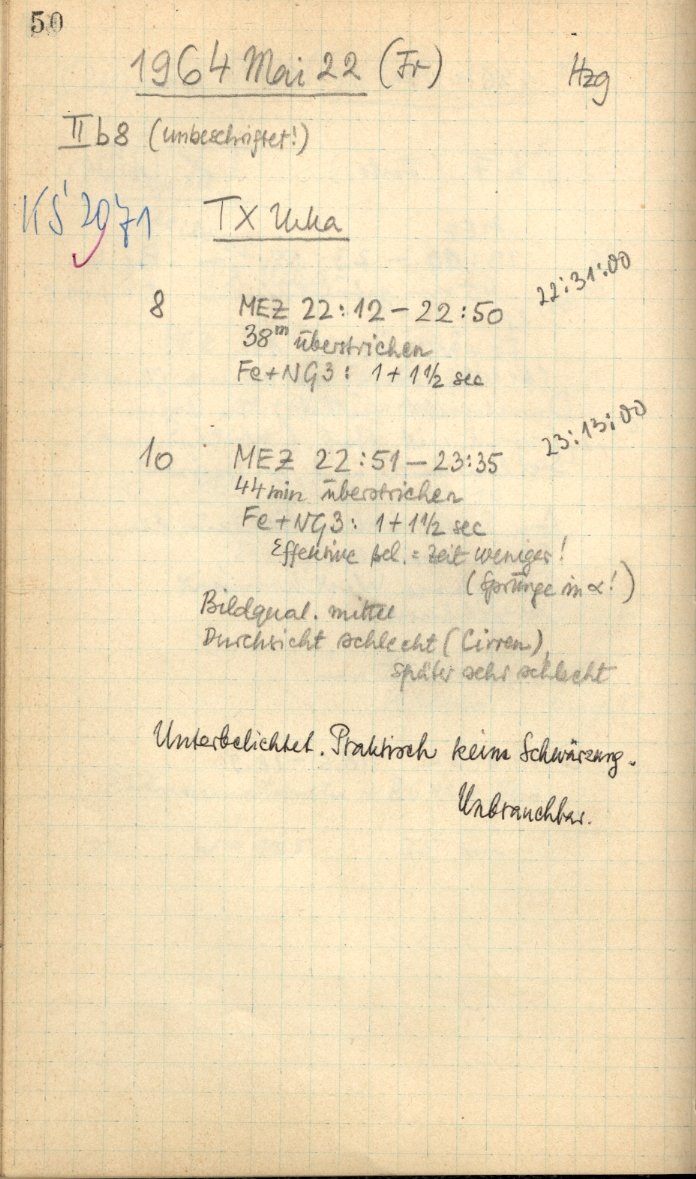 50
1964 Mai 22 (Fr) Hzg
II b 8 (unbeschriftet!)
KS 2071
TX UMa
22:31:00
8 MEZ 22:12 – 22:50
38m überstrichen
Fe+NG3: 1 + 1 1/2 sec
23:13:00
10 MEZ 22:51 – 23:35
44 min überstrichen
Fe+NG3: 1 + 1 1/2 sec
Effektive Bel.=Zeit weniger!
(Sprünge in α!)
Bildqual. mittel
Durchsicht schlecht (Cirren),
später sehr schlecht
Unterbelichtet. Praktisch keine Schwärzung.
Unbrauchbar.